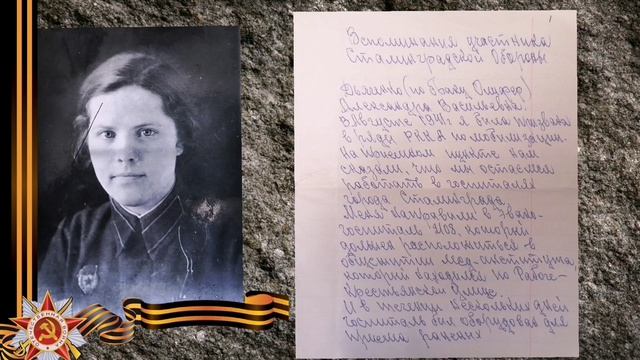 1
Вспоминания участника
Сталинградской Обороны
Дьяченко (по браку
Александра Васильевна.
В Августе 1941г. я была призвана
в ряды РККА по мобилизации.
На призывном пункте нам
сказали, что мы остаемся
работать в госпиталях
города Сталинграда.
Меня направили в Эвако-
госпиталь, который
должен расположиться в
общежитии мед-института,
который находился по Рабоче-
Крестьянской улице.
И в течении нескольких дней
госпиталь был оборудован для
приема раненых